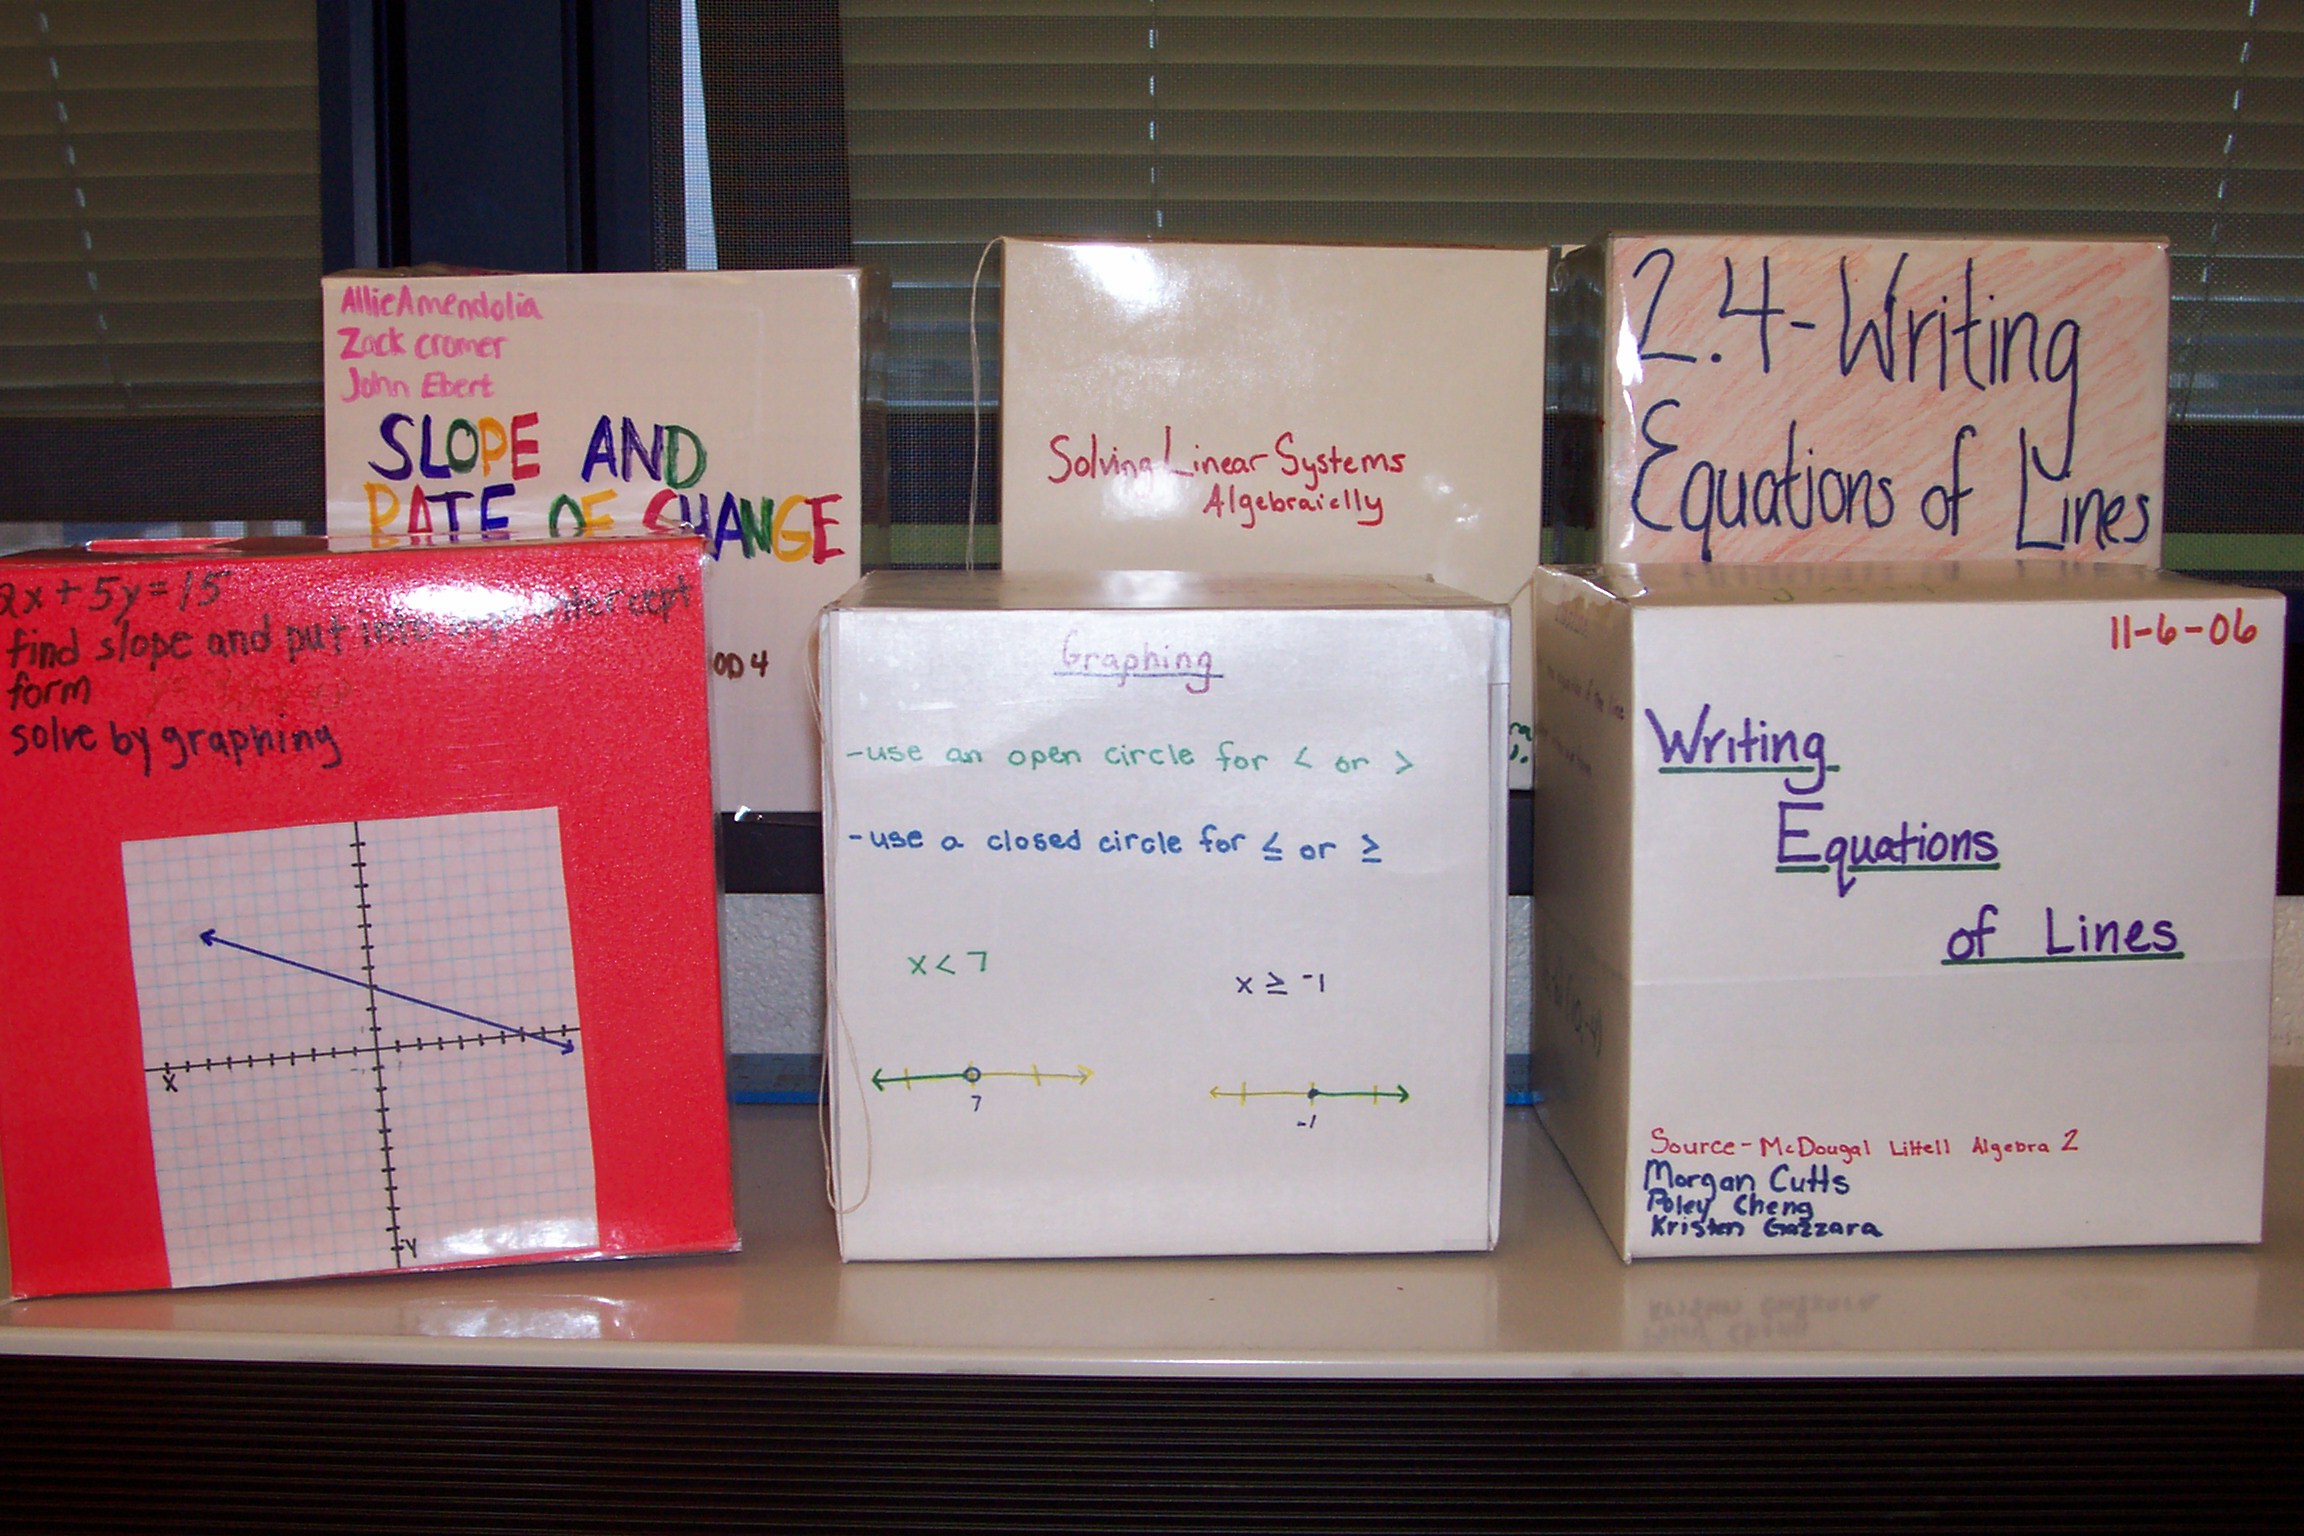 Allie Amendolia
Zack cromer
John Ebert
SLOPE AND
RATE OF CHANGE
OD 4
Solving Linear Systems
Algebraiclly
2.4-Writing
Equations of Lines
2x + 5y = 15
find slope and put into intercept
form
solve by graphing
X
Y
Graphing
-use an open circle for < or >
-use a closed circle for ≤ or ≥
x < 7
x ≥ -1
7
-1
11-6-06
Writing
Equations
of Lines
Source - McDougal Littell Algebra 2
Morgan Cutts
Poley Cheng
Kristen Gazzara